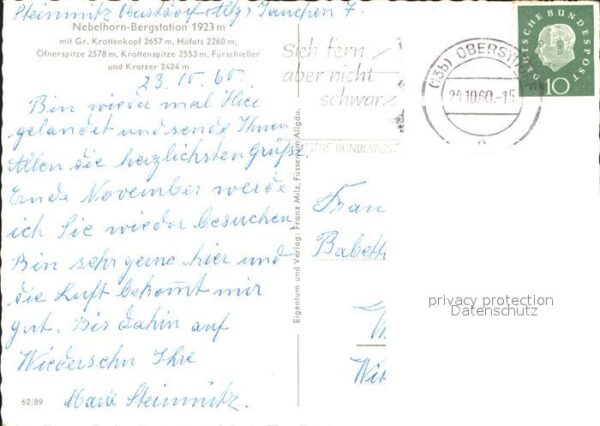 Steinmitz Allg. Jauchen 7.
Nebelhorn-Bergstation 1923 m
mit Gr. Krottenkopf 2657 m, Höfats 2260 m,
Öfnerspitze 2578 m, Krottenspitze 2553 m, Fürschießer
und Kratzer 2424 m
23.10.60.
Bin wieder mal Hier
gelandet und sende Ihnen
Allen die herzlichsten Grüße.
Ende November werde
ich Sie wieder besuchen
Bin sehr gerne hier und
die Luft bekommt mir
gut. Bis dahin auf
Wiedersehn Ihre
Marie Steinmitz.
62/89
Eigentum und Verlag: Franz Milz, Füssen im Allgäu.
Sich fern
aber nicht
schwarz
DEUTSCHE BUNDESPOST
(13b) OBERST
24.10.60.-15
DEUTSCHE BUNDESPOST
10
Frau
Babett
privacy protection
Datenschutz